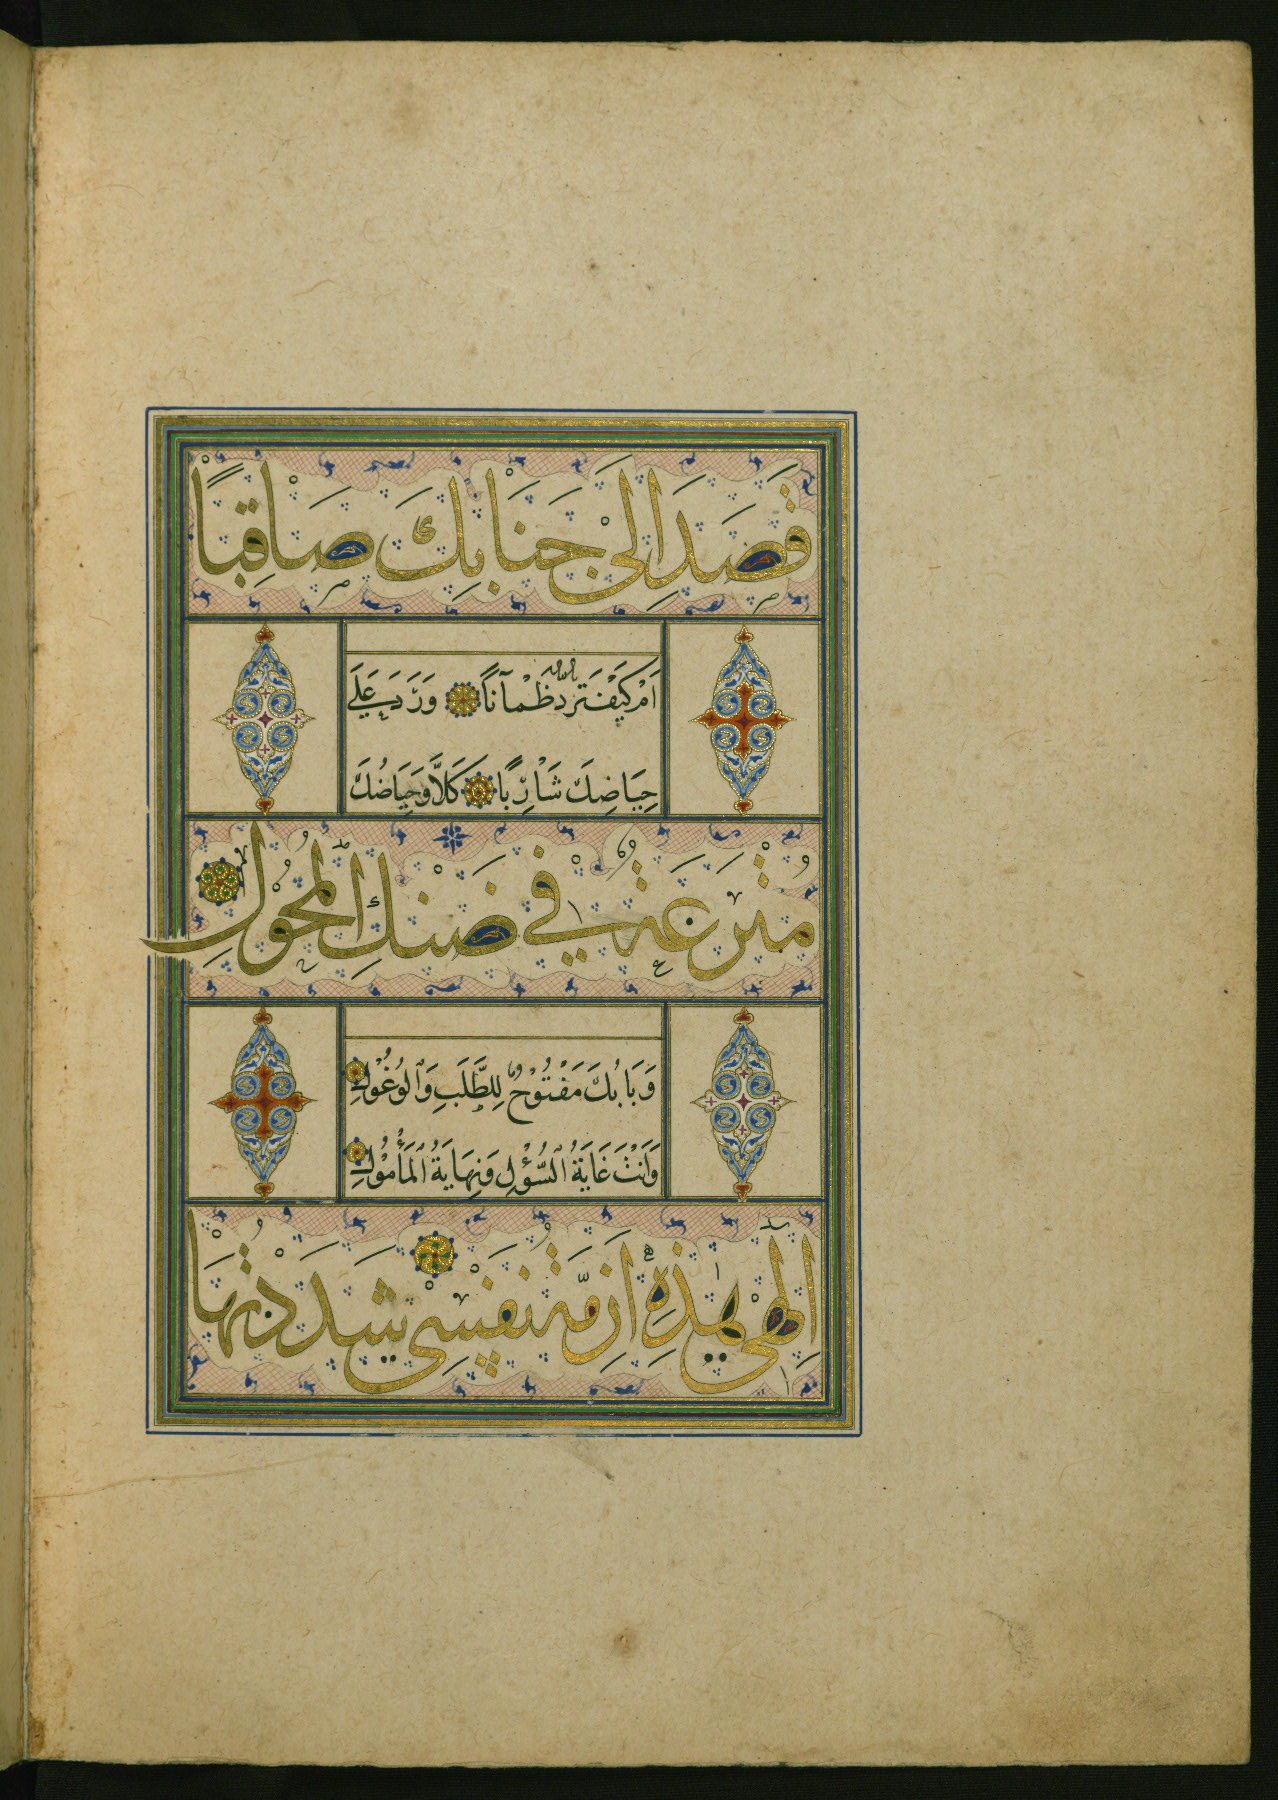 قَصَدَ اِلىٰ جَنَابِكَ صَاقِبًا
اَمْ كَيْفَ تَرُد ظَمْآنًا وَرَدَ عَلَى
حِيَاضِكَ شَارِبًا كَلَّا وَحِيَاضُكَ
مُتْرَعَةٌ فِي ضَنْكِ الْمُحُوْلِ
وَبَابُكَ مَفْتُوْحٌ لِلطَّلَبِ وَالْوُغُوْلِ
وَاَنْتَ غَايَةُ السُّؤْلِ وَنِهَايَةُ الْمَأْمُوْلِ
اِلٰهِي هٰذِهِ اَزِمَّةُ نَفْسِي شَدَدْتُهَا